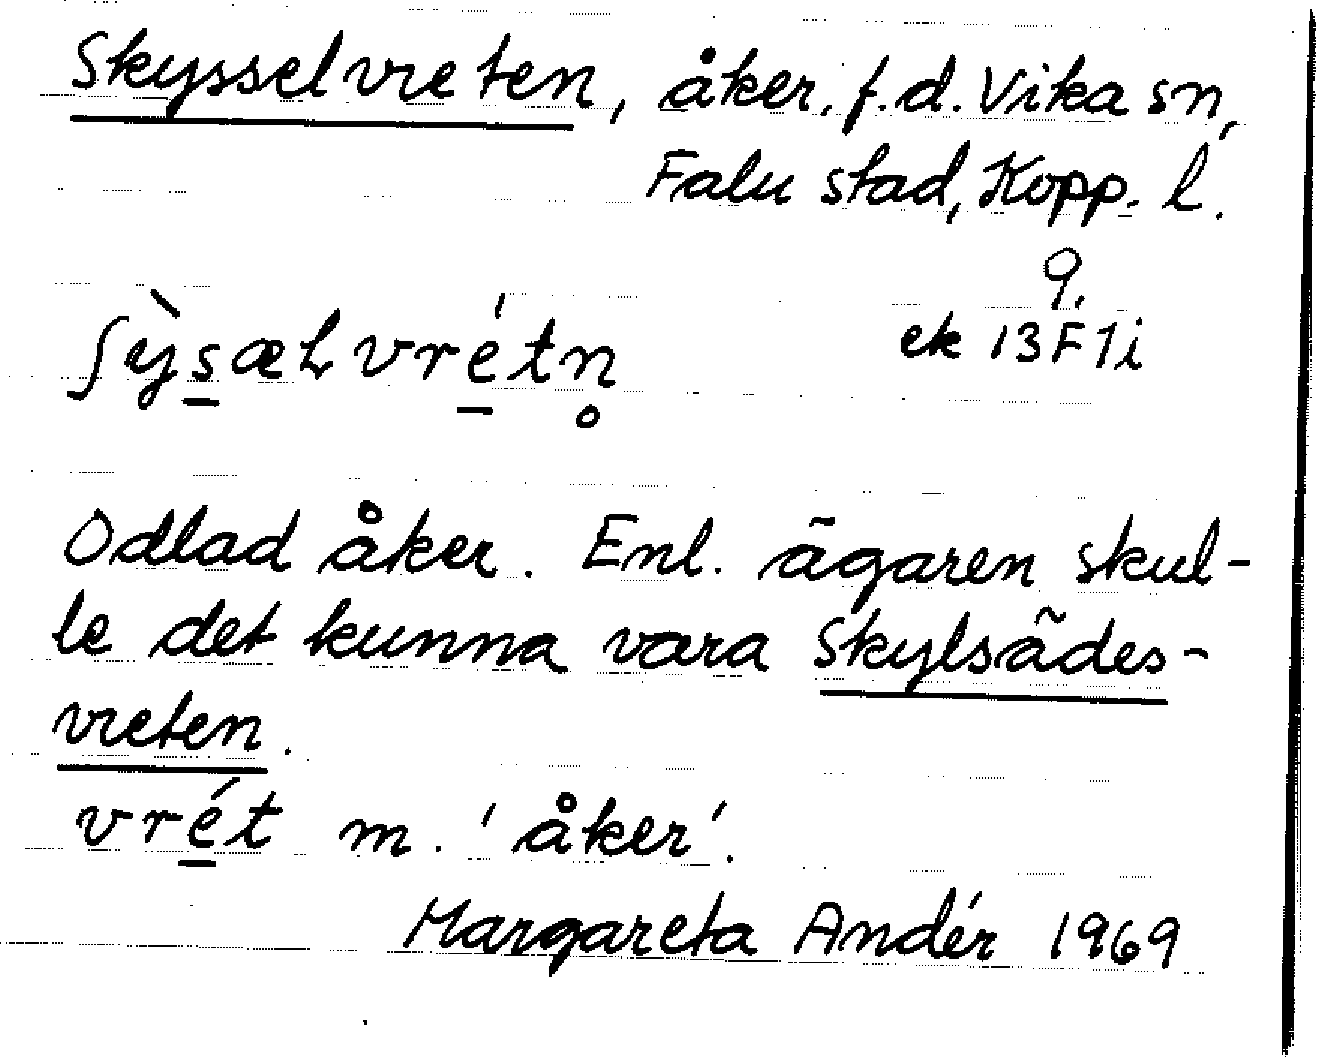 Skysselvreten, åker, f.d. Vika sn,
Falu stad, Kopp. l.
9.
ʃỳs̲æꞎ vré̲tn̥
ek 13F1i
Odlad åker. Enl. ägaren skul-
le det kunna vara Skylsädes-
vreten.
vré̲t m. 'åker'.
Margareta Andér 1969